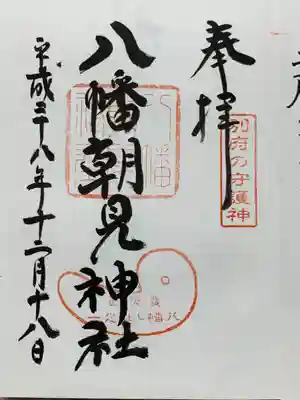 奉拝
別府の守護神
八幡朝見神社
平成二十八年十二月十八日